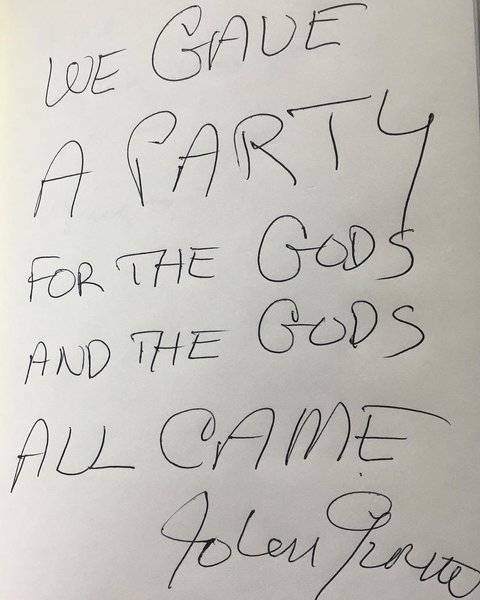 WE GAVE
A PARTY
FOR THE GODS
AND THE GODS
ALL CAME
John Giorno